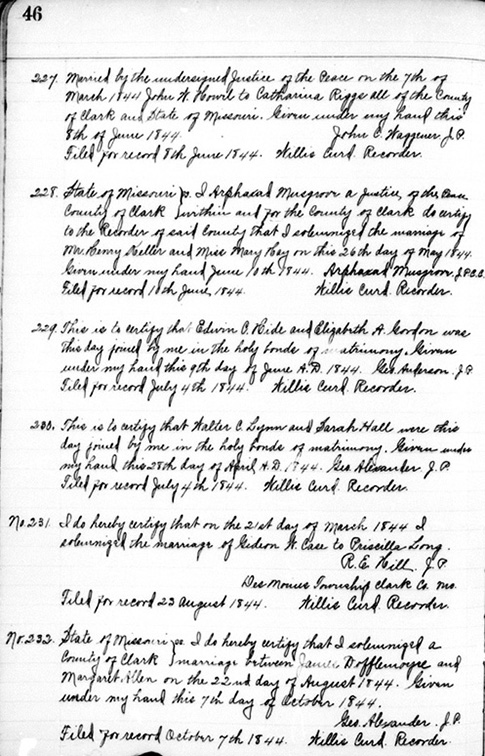 46
227. Married by the undersigned Justice of the Peace on the 7th of
March 1844 John W. Howel to Catharina Riggs all of the County
of Clark and State of Missouri. Given under my hand this
8th of June 1844. John C. Waggener J.P.
Filed for record 8th June 1844. Willis Curd. Recorder.
228. State of Missouri ss. I Arphaxad Musgrove a Justice, of the Peace
County of Clark within and for the County of Clark do certify
to the Recorder of said County that I solemnized the marriage of
Mr. Henry Heller and Miss Mary Hay on this 26th day of May 1844.
Given under my hand June 10th 1844. Arphaxad Musgrove, J.P.C.C.
Filed for record 10th June, 1844. Willis Curd. Recorder.
229. This is to certify that Edwin O. Hide and Elizabeth A. Gordon was
this day joined by me in the holy bonds of matrimony. Given
under my hand this 9th day of June A.D. 1844. Geo. Anderson. J.P.
Filed for record July 4th 1844. Willis Curd. Recorder.
230. This is to certify that Walter C. Lynn and Sarah Hall were this
day joined by me in the holy bonds of matrimony. Given under
my hand this 28th day of April A.D. 1844. Geo. Alexander. J.P.
Filed for record July 4th 1844. Willis Curd. Recorder.
No. 231. I do hereby certify that on the 21st day of March 1844 I
solemnized the marriage of Gideon W. Case to Priscilla Long.
R.E. Hill. J.P.
Des Moines Township Clark Co. Mo.
Filed for record 23 August 1844. Willis Curd. Recorder.
No. 232. State of Missouri ss. I do hereby certify that I solemnized a
County of Clark marriage between James Dofflemoyre and
Margaret Allen on the 22nd day of August 1844. Given
under my hand this 7th day of October 1844.
Geo. Alexander. J.P.
Filed for record October 7th 1844. Willis Curd. Recorder.